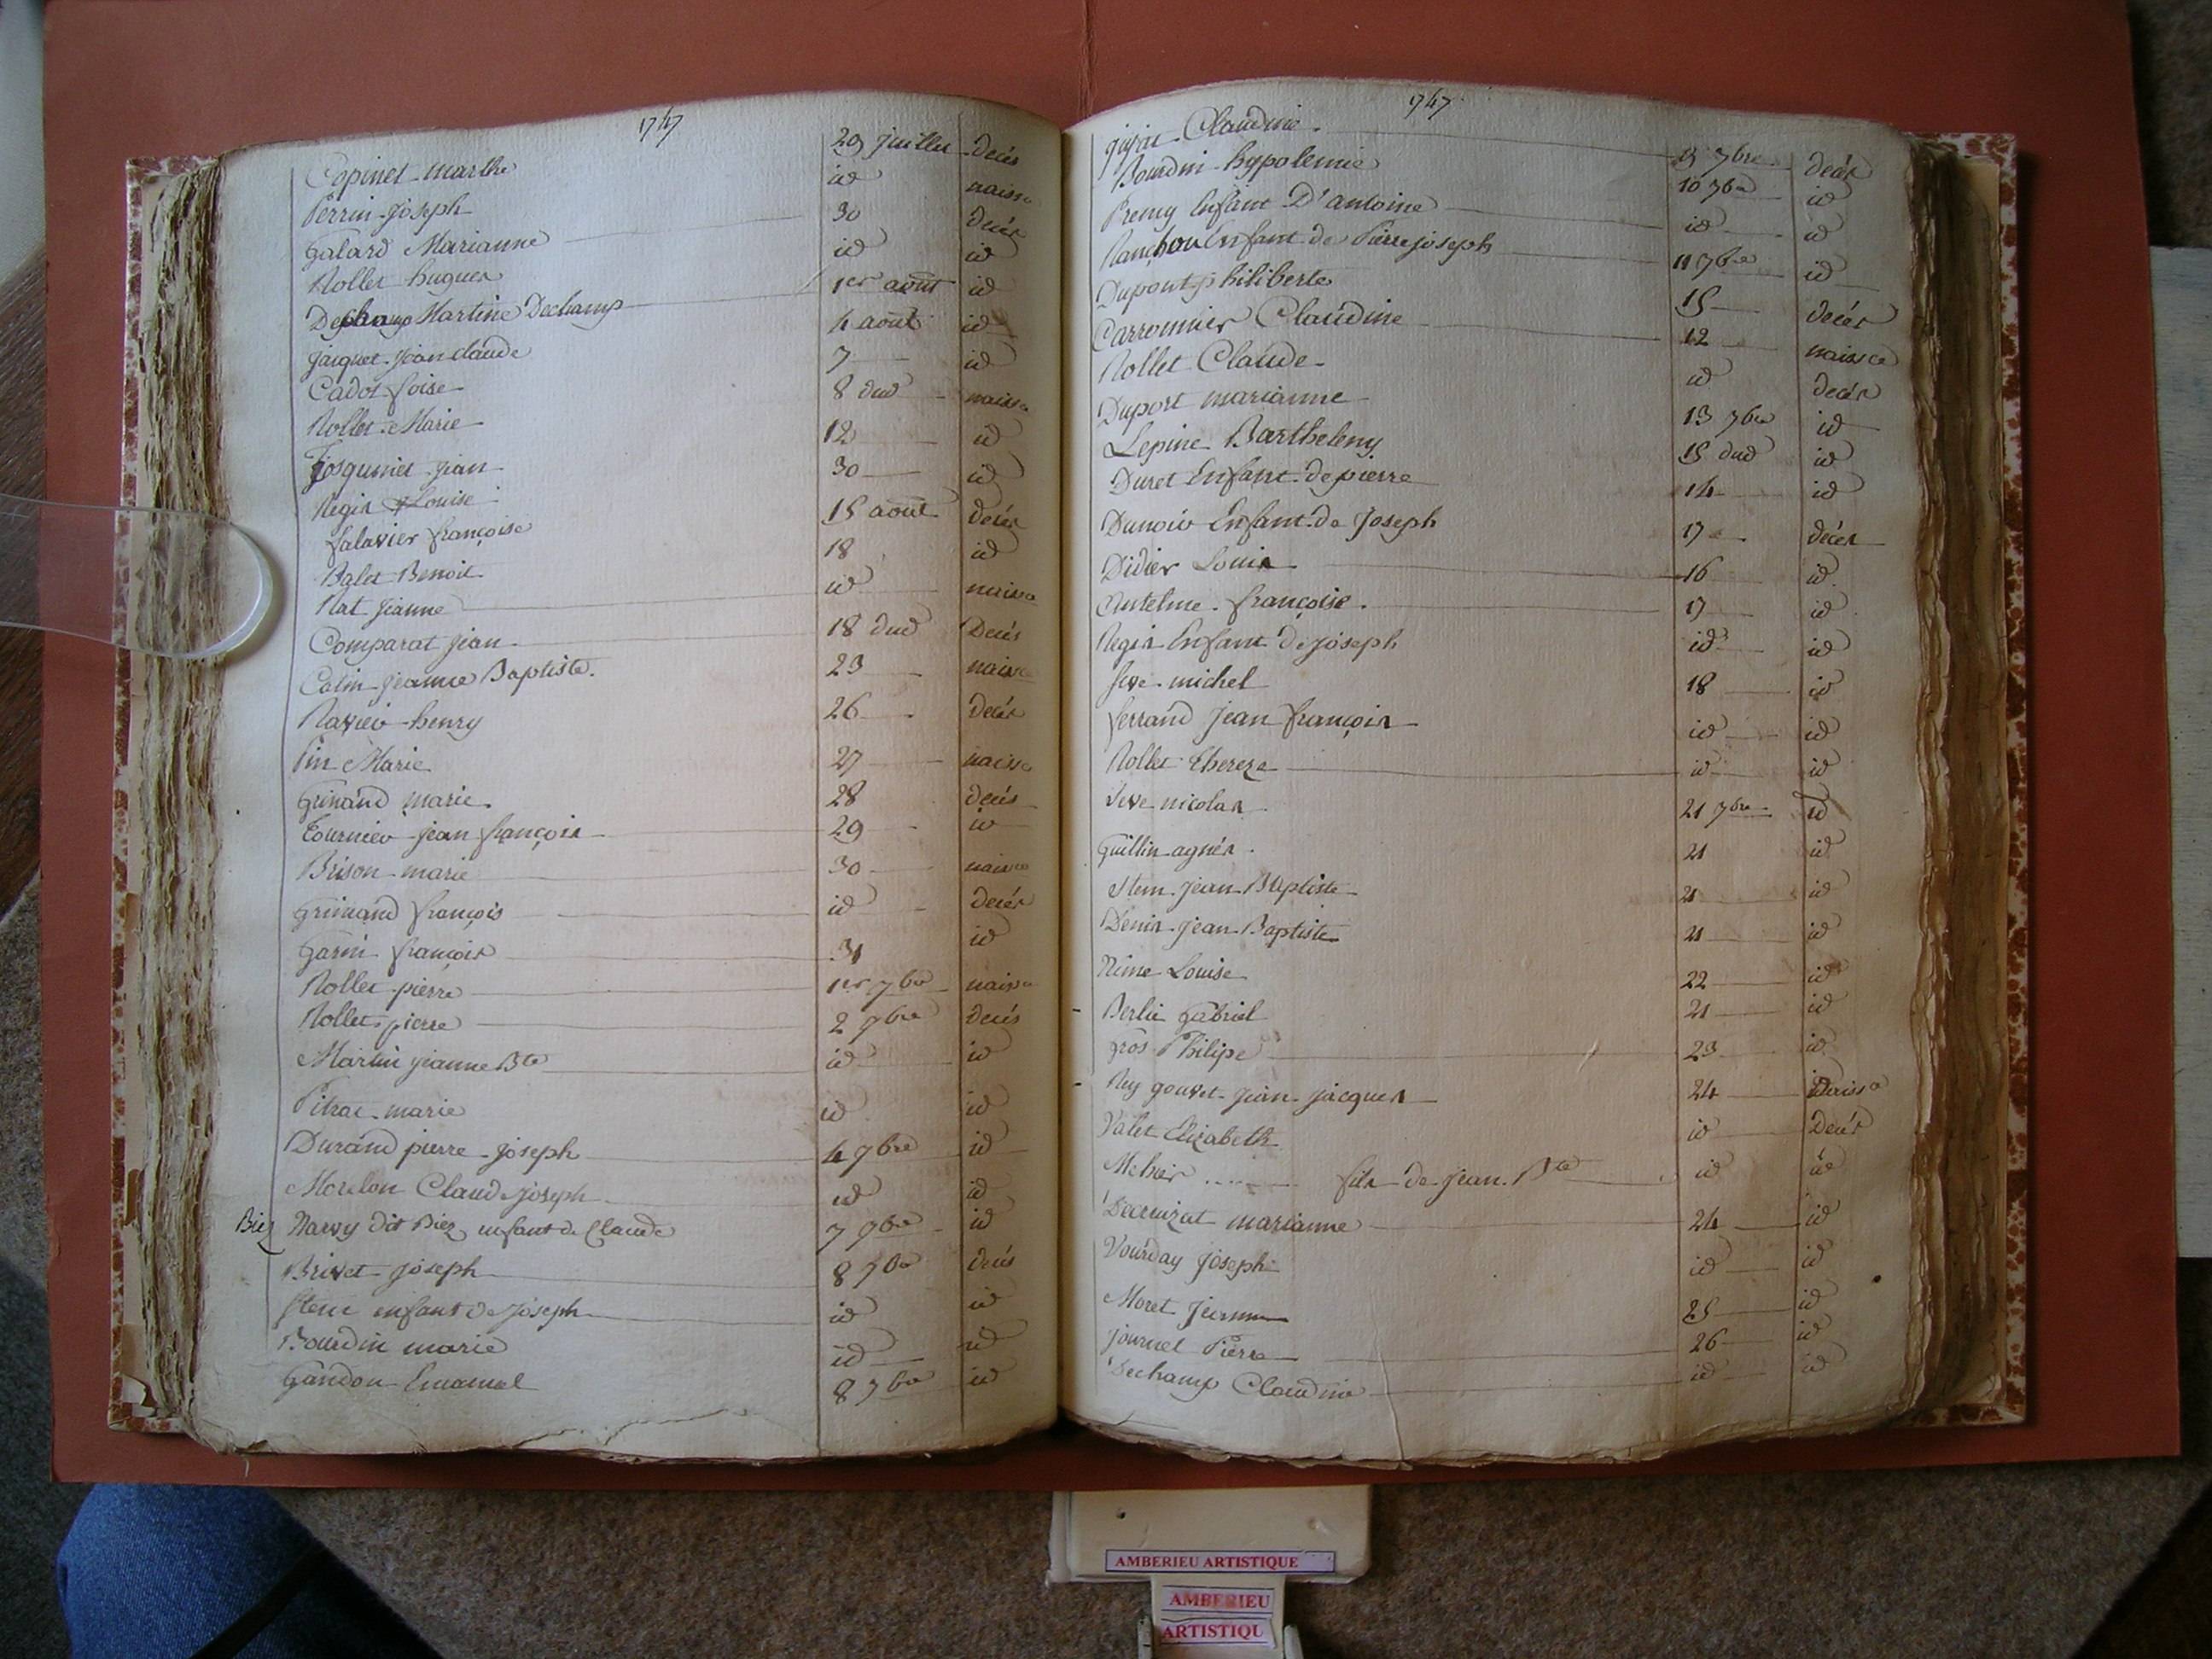 1747
Copinet marthe 29 juillet decés
Perrin joseph id naissce
Galard Marianne 30 decés
Rollet hugues id id
Martine Dechamp 1er août id
jacquet jean claude 4 août id
Cadot foise 7 id
Rollet Marie 8 dud naissce
jean 12 id
Regis Louise 30 id
falavier françoise 15 août decés
Balet Benoit 18 id
Rat jeanne id naissce
Comparat jean 18 dud Decés
Colin jeanne Baptiste. 23 naissce
Ravier henry 26 decés
Pin Marie 27 naissce
Grimand marie 28 decés
Tournier jean françois 29 id
Brison marie 30 naissce
Grimand françois id decés
Garin françois 31 id
Rollet pierre 1er 7bre naissce
Rollet pierre 2 7bre decés
Martin jeanne Bte id id
Pitrat marie id id
Durand pierre joseph 4 7bre id
Morelon Claude joseph id id
Biez Narvy dit Biez enfant de Claude 7 7bre id
Brivet joseph 8 7bre decés
enfant de joseph id id
Bourdin marie id id
Gandon Emanuel 8 7bre id
1747
Claudine 7bre decés
Bourdin hypolemie 10 7bre id
Premy Enfant D'antoine id id
Enfant de Pierre joseph 11 7bre id
Dupont philiberte 15 decés
Carronnier Claudine 12 naissce
Rollet Claude id decés
Duport marianne 13 7bre id
Lepine Barthelemy 15 dud id
Duret Enfant de pierre 14 id
Dunoir Enfant de Joseph 17 decés
Didier Louis 16 id
Antelme françoise 17 id
Regis Enfant de joseph id id
Seve michel 18 id
ferrand jean françois id id
Rollet Thereze id id
Seve nicolas 21 7bre id
Guillin agnés 21 id
jean Baptiste 21 id
Denis jean Baptiste 21 id
Nime Louise 22 id
Berlie Gabriel 21 id
Gros Philipe 23 id
Rey gouvet jean jacques 24 Naissce
Valet Elizabeth id Decés
fils de jean Bte id id
Decruizat marianne 24 id
Vourday joseph id id
Moret Jeanne 25 id
journet Pierre 26 id
Dechamp Claudine id id
AMBERIEU ARTISTIQUE
AMBERIEU
ARTISTIQU